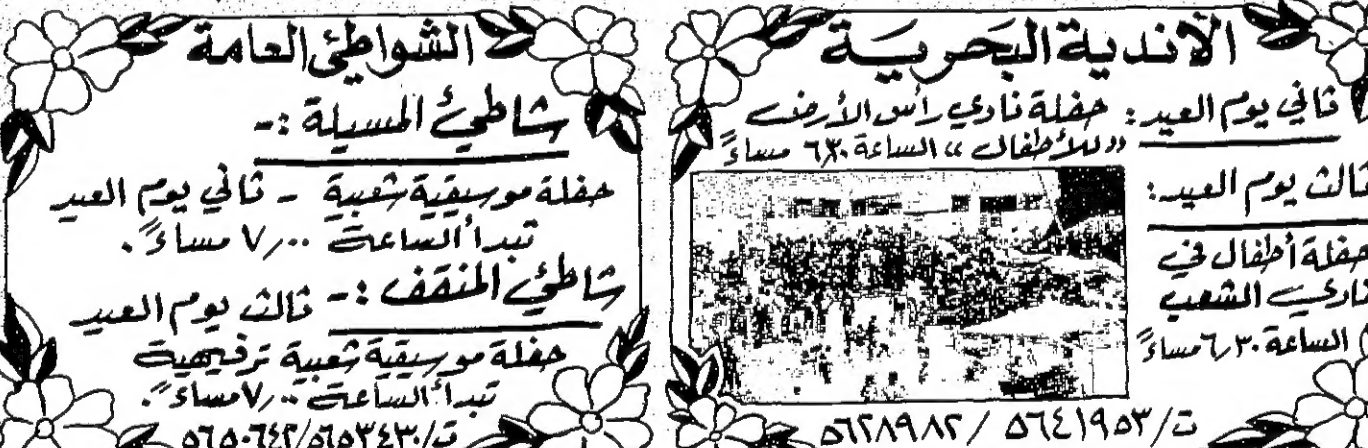 الأندية البحرية
ثاني يوم العيد: حفلة نادي رأس الأرض
((للأطفال)) الساعة ٦٫٣٠ مساءً
ثالث يوم العيد:
حفلة أطفال في
نادي الشعب
الساعة ٦٫٣٠ مساءً
ت/٥٦٤١٩٥٣ / ٥٦٢٨٩٨٢
الشواطئ العامة
شاطئ المسيلة :-
حفلة موسيقية شعبية - ثاني يوم العيد
تبدأ الساعة ٧٫٠٠ مساءً.
شاطئ المنقف :- ثالث يوم العيد
حفلة موسيقية شعبية ترفيهية
تبدأ الساعة ٧٫٠٠ مساءً.
ت/٥٦٥٣٤٣٠/٥٦٥٠٦٤٢